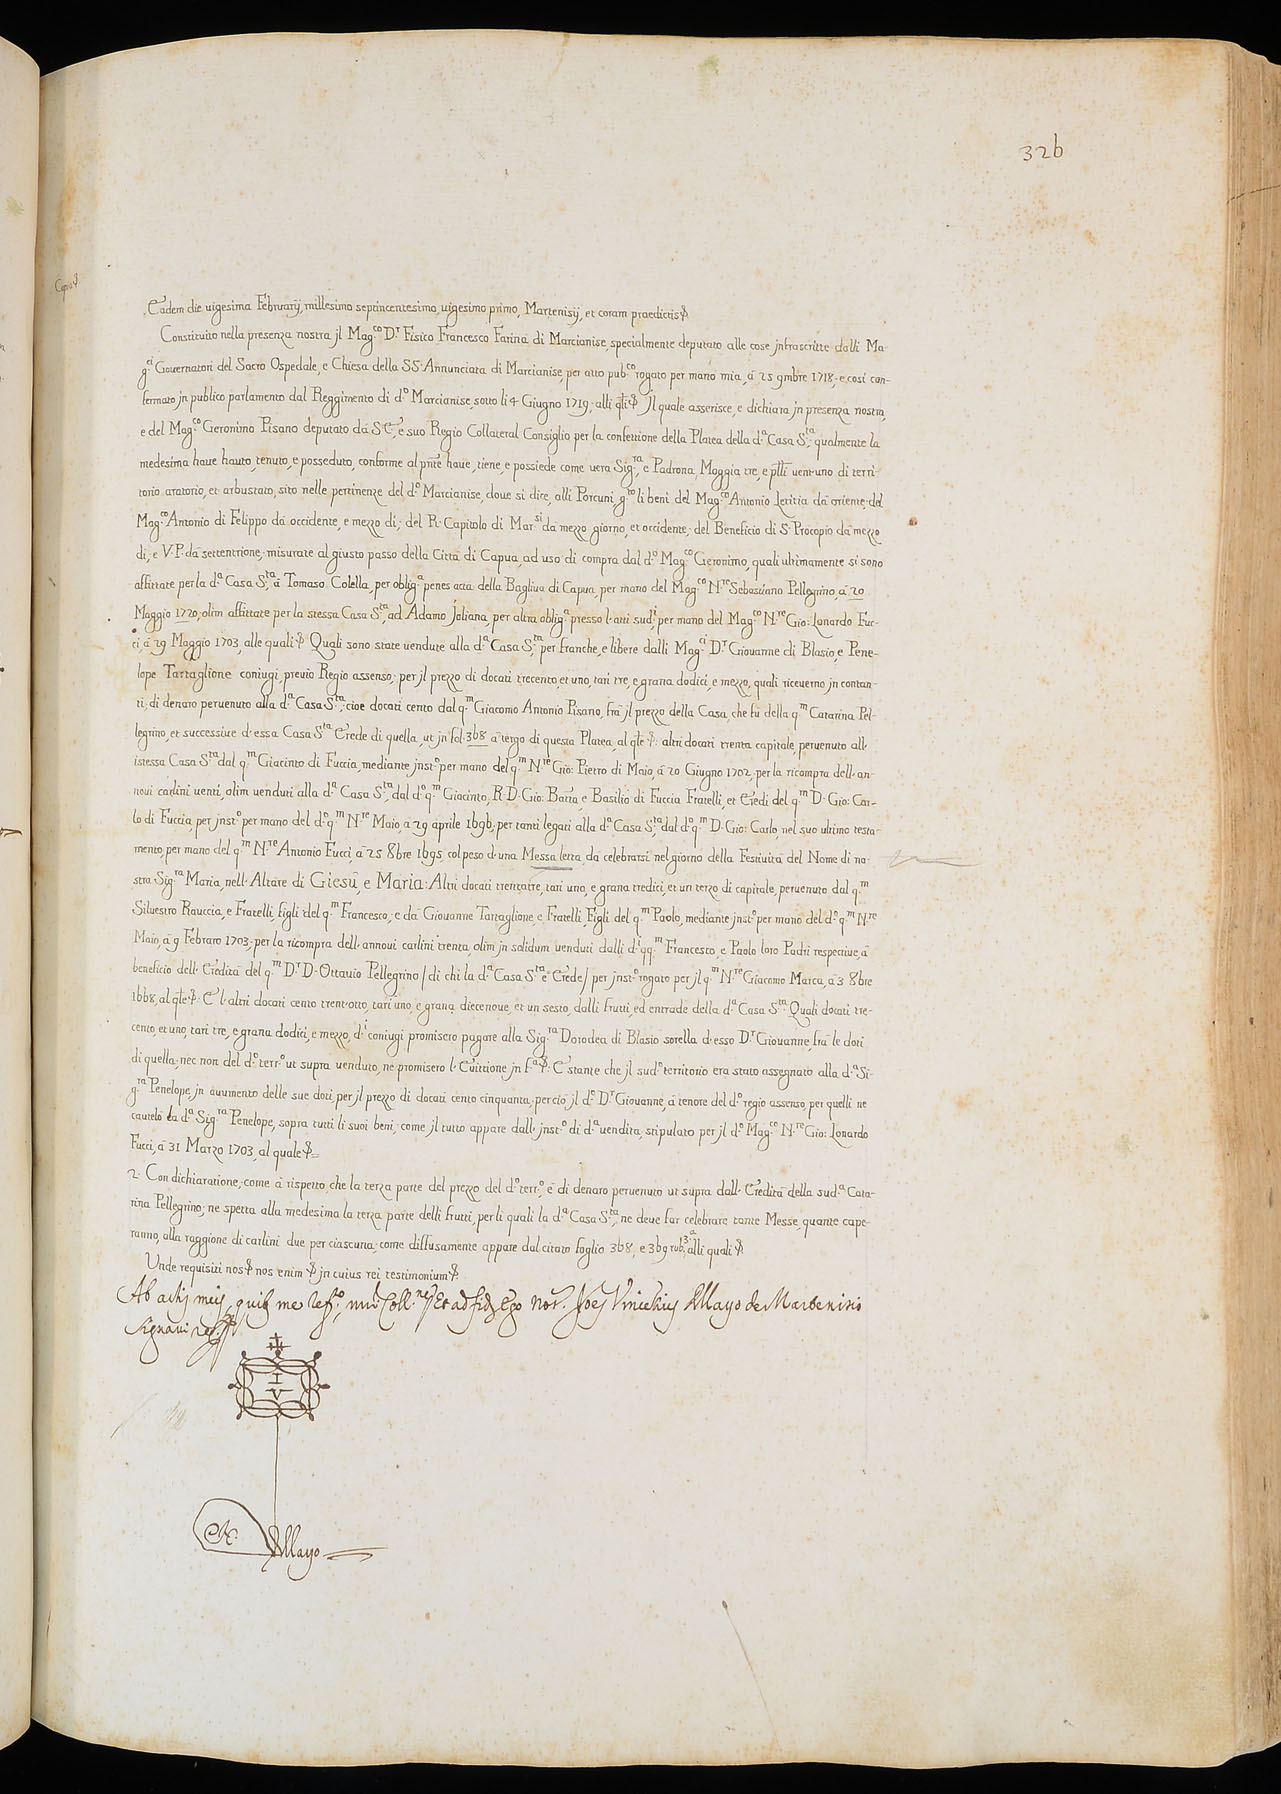 326
Copiat.
Eadem die uigesima Februarÿ, millesimo septincentesimo, uigesimo primo, Martenisÿ, et coram praedictis
Constituito nella presenza nostra jl Mag.co D.r Fisico Francesco Farina di Marcianise, specialmente deputato alle cose jnfrascritte dalli Ma-
g.ci Gouernatori del Sacro Ospedale, e Chiesa della SS. Annunciata di Marcianise, per atto pub.co rogato per mano mia, à 25 9mbre 1718, e così con-
fermato jn publico parlamento dal Reggimento di d.o Marcianise, sotto li 4 Giugno 1719; alli qli Jl quale asserisce, e dichiara jn presenza nostra,
e del Mag.co Geronimo Pisano deputato dà S. E., e suo Regio Collateral Consiglio per la confettione della Platea della d.a Casa S.ta, qualmente la
medesima haue hauto, tenuto, e posseduto, conforme al pnte haue, tiene, e possiede come uera Sig.ra, e Padrona, Moggia tre, e pssi uent'uno di terri-
torio aratorio, et arbustato, sito nelle pertinenze del d.o Marcianise, doue si dice, alli Porcuni, g.to li beni del Mag.co Antonio Letitia dà oriente; del
Mag.co Antonio di Filippo dà occidente, e mezzo di; del R. Capitolo di Mar.si dà mezzo giorno, et occidente; del Beneficio di S. Procopio dà mezzo
di, e V. P. dà settentrione; misurate al giusto passo della Città di Capua, ad uso di compra dal d.o Mag.co Geronimo, quali ultimamente si sono
affittate per la d.a Casa S.ta à Tomaso Colella, per oblig.a penes acta della Bagliua di Capua, per mano del Mag.co N.re Sebastiano Pellegrino, à 20
Maggio 1720, olim affittate per la stessa Casa S.ta, ad Adamo Joliana, per altra oblig.a presso l'atti sud.i, per mano del Mag.co N.re Gio: Lonardo Fuc-
ci, à 29 Maggio 1703, alle quali Quali sono state uendute alla d.a Casa S.ta, per franche, e libere dalli Mag.ci D.r Giouanne di Blasio, e Pene-
lope Tartaglione coniugi, preuio Regio assenso, per jl prezzo di docati trecento, et uno, tari tre, e grana dodici, e mezzo, quali riceuerno jn contan-
ti, di denaro peruenuto alla d.a Casa S.ta; cioè docati cento dal q.m Giacomo Antonio Pisano, frà jl prezzo della Casa, che fù della q.m Catarina Pel-
legrino, et successiue d'essa Casa S.ta Erede di quella, ut jn fol. 368 à tergo di questa Platea, al qle: altri docati trenta capitale, peruenuto all'
istessa Casa S.ta dal q.m Giacinto di Fuccia, mediante jnst.o per mano del q.m N.re Gio: Pietro di Maio, à 20 Giugno 1702, per la ricompra dell'an-
noui carlini uenti, olim uenduti alla d.a Casa S.ta, dal d.o q.m Giacinto, R. D. Gio: Batta, e Basilio di Fuccia Fratelli, et Eredi del q.m D. Gio: Car-
lo di Fuccia, per jnst.o per mano del d.o q.m N.re Maio, à 29 aprile 1696, per tanti legati alla d.a Casa S.ta, dal d.o q.m D. Gio: Carlo, nel suo ultimo testa-
mento, per mano del q.m N.re Antonio Fucci, à 25 8bre 1695, col peso d'una Messa letta, dà celebrarsi nel giorno della Festiuità del Nome di no-
stra Sig.ra Maria, nell'Altare di Giesù, e Maria: Altri docati trentatre, tari uno, e grana tredici, et un terzo di capitale, peruenuto dal q.m
Siluestro Rauccia, e Fratelli, figli del q.m Francesco, e dà Giouanne Tartaglione, e Fratelli, Figli del q.m Paolo, mediante jnst.o per mano del d.o q.m N.re
Maio, à 9 Febraro 1703, per la ricompra dell'annoui carlini trenta, olim jn solidum uenduti dalli d.i qq.m Francesco, e Paolo loro Padri respectiue, à
beneficio dell'Eredità del q.m D.r D. Ottauio Pellegrino / di chi la d.a Casa S.ta è Erede / per jnst.o rogato per jl q.m N.re Giacomo Marca, à 3 8bre
1668, al qle: E l'altri docati cento trent'otto, tari uno, e grana diecenoue, et un sesto, dalli frutti, ed entrade della d.a Casa S.ta. Quali docati tre-
cento, et uno, tari tre, e grana dodici, e mezzo, d.i coniugi promisero pagare alla Sig.ra Dorodea di Blasio sorella d'esso D.r Giouanne, frà le doti
di quella, nec non del d.o terr.o ut supra uenduto, ne promisero l'Euittione jn f.a: E stante che jl sud.o territorio era stato assegnato alla d.a Si-
g.ra Penelope, jn aumento delle sue doti, per jl prezzo di docati cento cinquanta, percio, jl d.o D.r Giouanne, à tenore del d.o regio assenso, per quelli ne
cautelò la d.a Sig.ra Penelope, sopra tutti li suoi beni, come jl tutto appare dall'jnst.o di d.a uendita, stipulato per jl d.o Mag.co N.re Gio: Lonardo
Fucci, à 31 Marzo 1703, al quale
2. Con dichiaratione, come à rispetto, che la terza parte del prezzo del d.o terr.o, è di denaro peruenuto ut supra dall'Eredità della sud.a Cata-
rina Pellegrino; ne spetta alla medesima la terza parte delli frutti, per li quali la d.a Casa S.ta, ne deue far celebrare tante Messe, quante cape-
ranno, alla raggione di carlini due per ciascuna, come diffusamente appare dal citato foglio 368, e 369 rub. 13.a alli quali
Unde requisiti nos nos enim jn cuius rei testimonium
Ab actis meis, quibus me Coll.ne Et ad fidem Ego Not. Joes Vincentius Mayo de Martenisio
signaui
I
V
N. Mayo